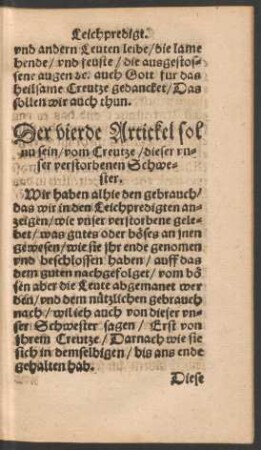 Leichpredigt.
vnd andern Leuten leibe/die lame
hende/ vnd feuste/ die ausgestos-
sene augen ꝛc. auch Gott für das
heilsame Creutze gedancket/Das
sollen wir auch thun.
Der vierde Artickel sol
nu sein/vom Creutze/dieser vn-
ser verstorbenen Schwe-
ster.
Wir haben alhie den gebrauch/
das wir in den Leichpredigten an-
zeigen/wie vnser verstorbene gele-
bet/was gutes oder böses an jnen
gewesen/wie sie jhr ende genomen
vnd beschlossen haben/auff das
dem guten nachgefolget/vom bö
sen aber die Leute abgemanet wer
den/vnd dem nützlichen gebrauch
nach/wil ich auch von dieser vn-
ser Schwester sagen/Erst von
jhrem Creutze/Darnach wie sie
sich in demselbigen/bis ans ende
gehalten hab.
Diese